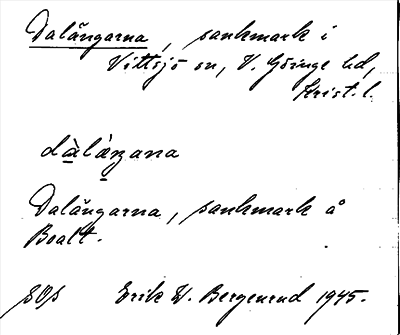 Dalängarna, sankmark i
Vittsjö sn, V. Göinge hd,
Krist. l.
dàlǽŋana
Dalängarna, sankmark å
Boalt.
SOS Erik W. Bergenrud 1945.